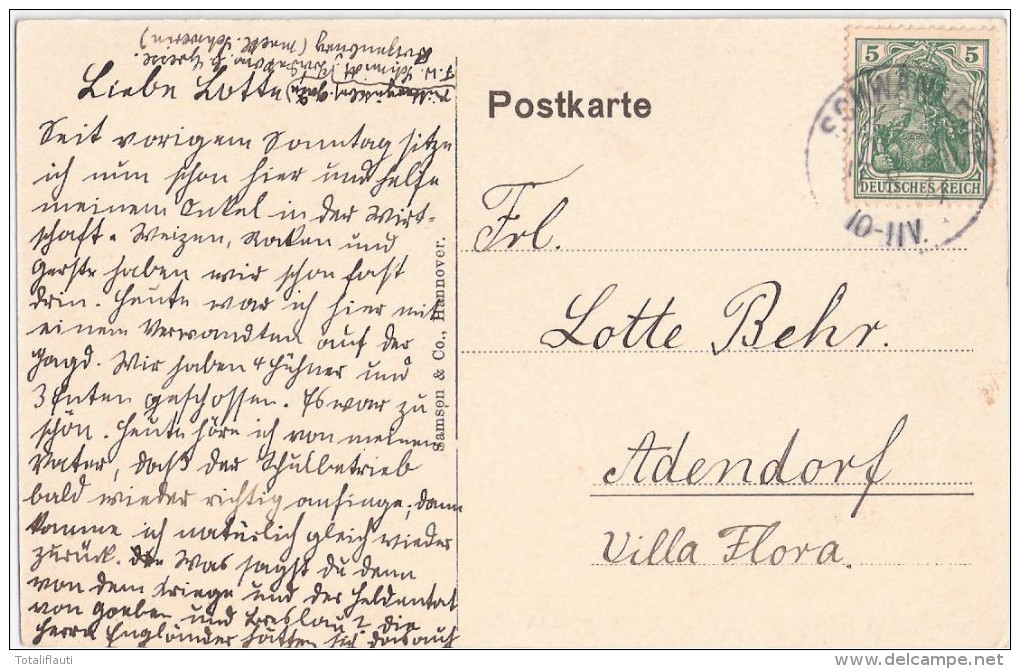 Liebe Lotte
Seit vorigem Sonntag sitze
ich nun schon hier und helfe
meinem Onkel in der Wirt-
schaft. Weizen, Roken und
Gerste haben wir schon fast
drin. Heute war ich hier mit
einem Verwandten auf der
Jagd. Wir haben 4 Hühner und
3 Enten geschossen. Es war zu
schön. Heute höre ich von meinem
Vater, daß der Schulbetrieb
bald wieder richtig anfinge, dann
komme ich natürlich gleich wieder
zurück. Was sagst du denn
von dem Kriege und der Heldentat
von Goeben und Breslau? Die
Herrn Engländer hätten sich das auch
F. W. Schmidt
(Meckl. Schwerin)
Samson & Co., Hannover.
Postkarte
5 5
DEUTSCHES REICH
10-11V.
Frl.
Lotte Behr.
Adendorf
Villa Flora.
Totaliflauti
delcampe.net